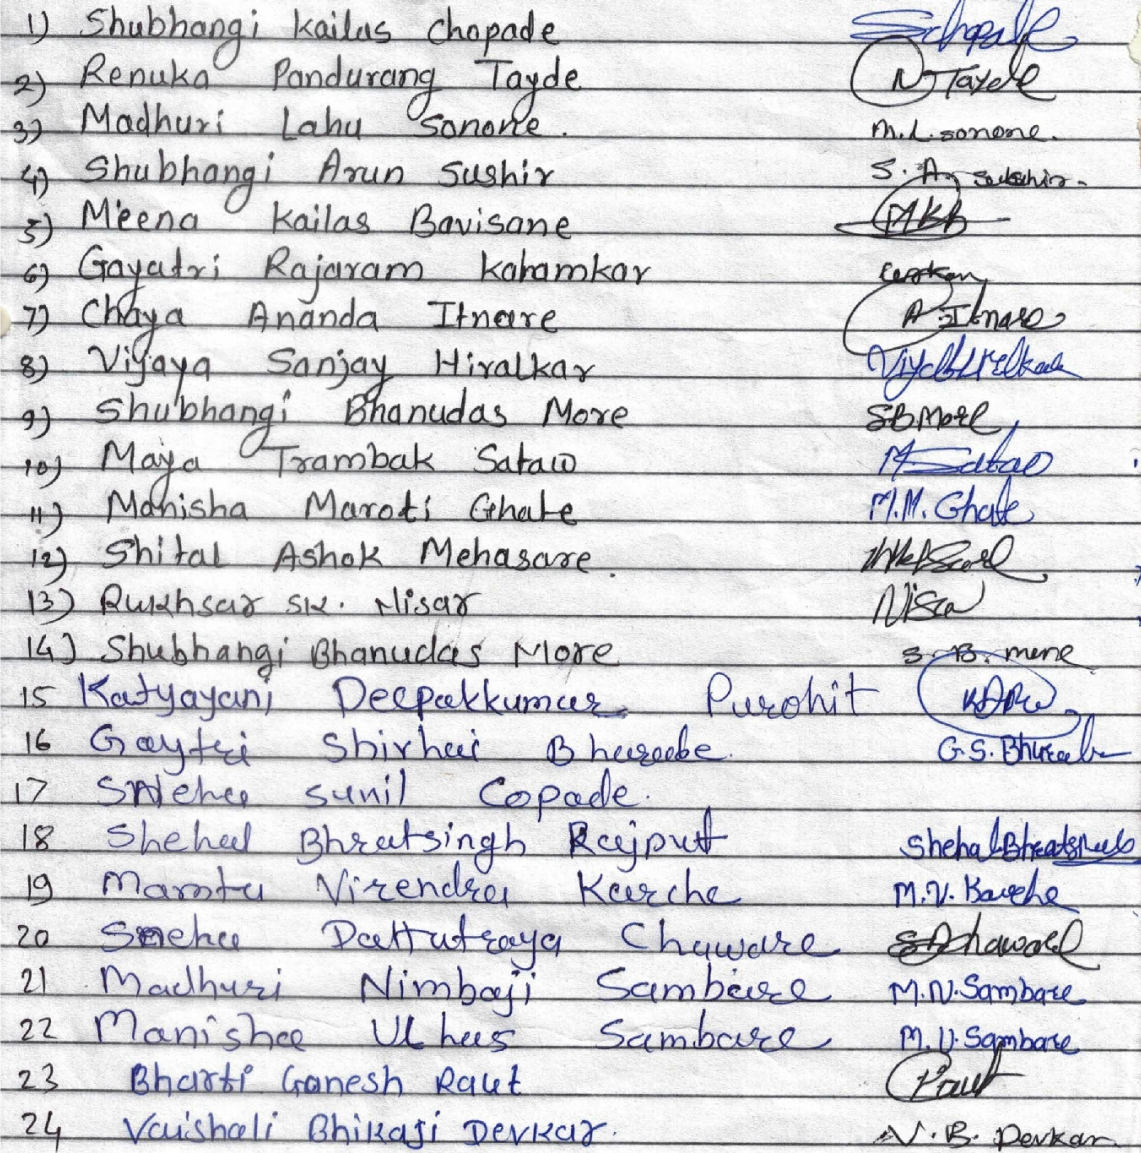 1) Shubhangi Kailas Chopade Schopade
2) Renuka Pandurang Tayde Tayde
3) Madhuri Lahu Sonone. M.L.sonone.
4) Shubhangi Arun Sushir S.A.
5) Meena Kailas Bavisane MKB
6) Gayatri Rajaram Kahamkar
7) Chaya Ananda Itnare A.Itnare
8) Vijaya Sanjay Hiralkar
9) Shubhangi Bhanudas More SBMore
10) Maya Trambak Sataw M Satao
11) Manisha Maroti Ghate M.M. Ghate
12) Shital Ashok Mehasare.
13) Rukhsar SK. Nisar Nisa
14) Shubhangi Bhanudas More S.B. more
15 Katyayani Deepakkumar Purohit
16 Gaytri Shirhari Bharabe. G.S.Bharabe
17 Sneha sunil Copade.
18 Shehal Bhratsingh Rajput
19 Mamta Virendra Karche M.V.Karche
20 Sneha Dattatraya Chaware
21 Madhuri Nimbaji Sambare M.N.Sambare
22 Manisha Ulhas Sambare M.U.Sambare
23 Bharti Ganesh Raut Raut
24 Vaishali Bhikaji Devkar. V.B. Devkar